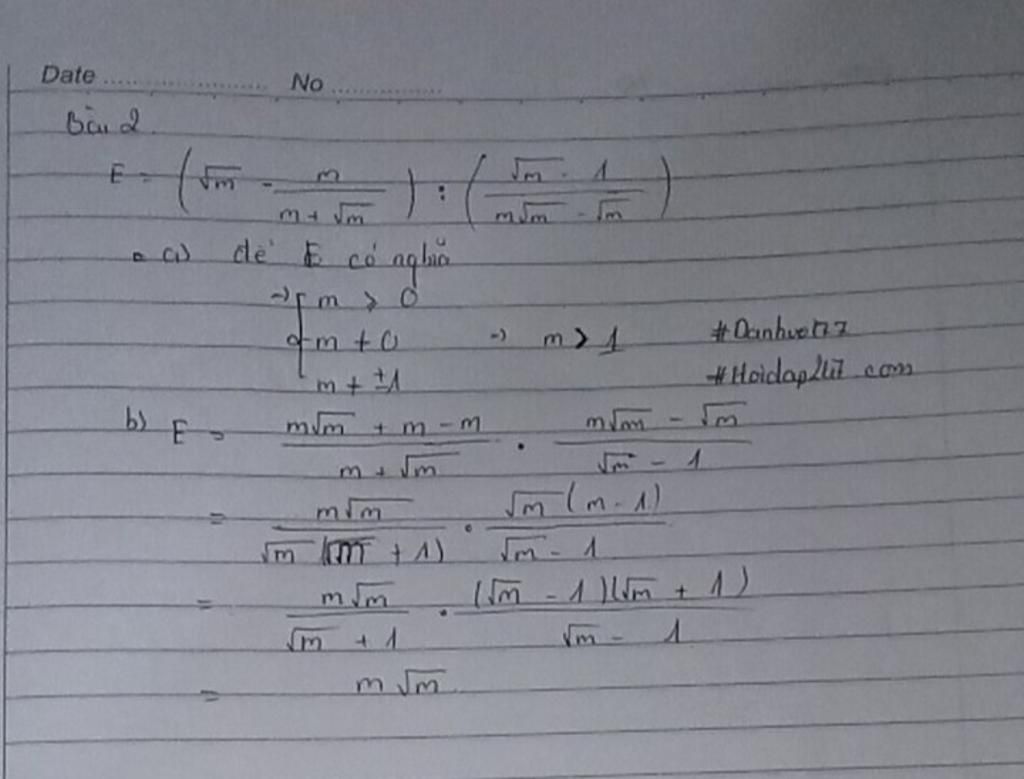 Date .................... No ..............
Bài 2
E = (√m - m/(m + √m)) : ((√m - 1)/(m√m - √m))
a) để E có nghĩa
→ { m > 0
m ≠ 0 → m > 1
m ≠ ±1
#Danhvot77
#Hoidap247.com
b) E = (m√m + m - m)/(m + √m) . (m√m - √m)/(√m - 1)
= m√m/(√m(√m + 1)) . √m(m - 1)/(√m - 1)
= m√m/(√m + 1) . (√m - 1)(√m + 1)/(√m - 1)
= m√m